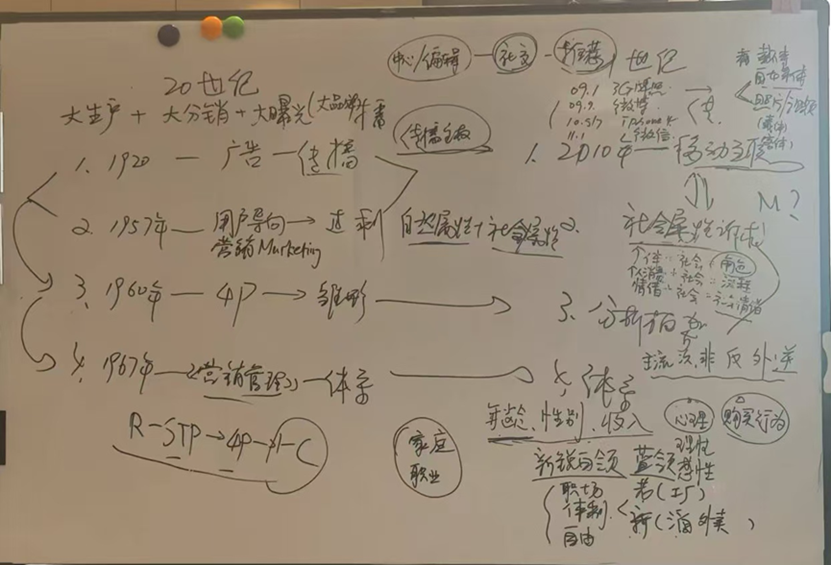 20世纪
大生产 + 大分销 + 大曝光(大品牌)
1. 1920 — 广告 — 传播
2. 1957年 — 用户导向 → 过剩
营销Marketing
3. 1960年 — 4P → 雏形
4. 1967年 — 《营销管理》 — 体系
R-STP→4P-I-C
中心/编辑 — 社交 — 推荐
传播
自然属性+社会属性
家庭
职业
世纪
09.1 3G牌照 →
09.9 微博
10.5/7 iphone4
11.1 微信
自由
照片/视频
1. 2010年 — 移动互联
M?
2. 社会属性诉求
个体 = 社会
+ 社会 =
情绪 + 社会 = 社会情绪
3. 分析
主流 次 非 反 外 逆
4. 体系
年龄、性别、收入
心理
购买行为
理性
感性
新锐白领 蓝领
职场
体制
自由
老(工厂)
新( 外卖 )